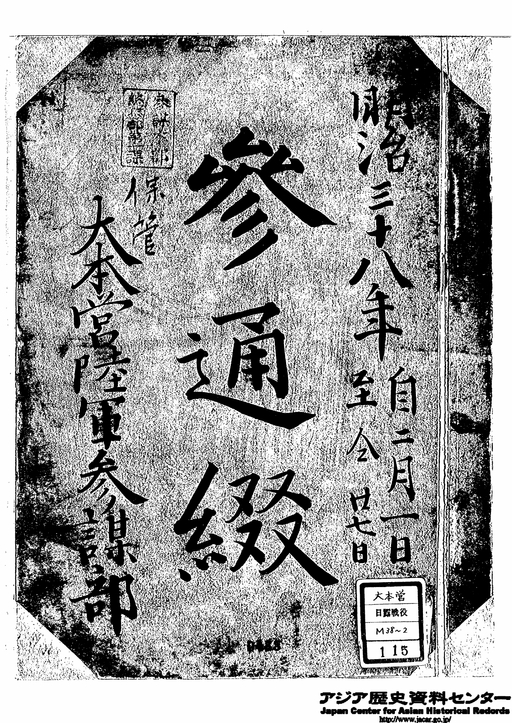 明治三十八年
自二月一日
至仝廿七日
參通綴
保管
大本營陸軍參謀部
大本営
日露戦役
M38~2
115
アジア歴史資料センター
Japan Center for Asian Historical Records
http://www.jacar.go.jp/